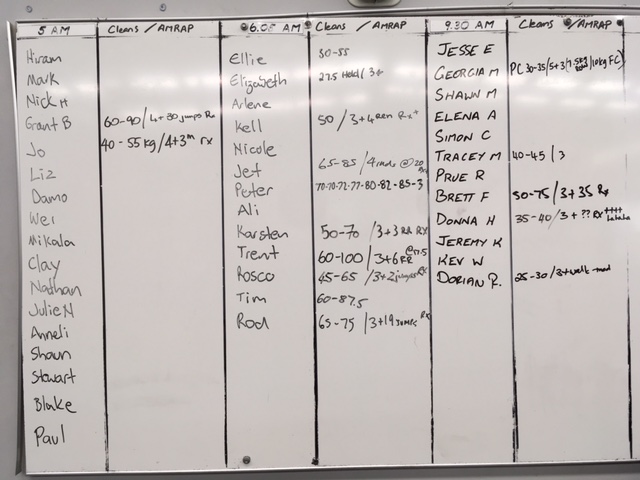 5 AM Cleans /AMRAP 6.05 AM Cleans / AMRAP 9.30 AM Cleans /AMRAP
Hiram
Mark
Nick H
Grant B 60-90/4+30 jumps Rx
Jo 40-55kg/4+3m rx
Liz
Damo
Wei
Mikala
Clay
Nathan
Julie N
Anneli
Shaun
Stewart
Blake
Paul
Ellie 30-55
Elizabeth 27.5 Held/3+
Arlene
Kell 50 /3+4 Rx+
Nicole
Jet 65-85/4 @20
Peter 70-70-72-77-80-82-85-3
Ali
Karsten 50-70 /3+3 RR RX
Trent 60-100/3+6RR @17.5
Rosco 45-65 /3+2 RX
Tim 60-87.5
Rod 65-75 /3+19 jumps RX
JESSE E
GEORGIA M PC 30-35/5+3(7.5kg /10kg FC)
SHAWN M
ELENA A
SIMON C
TRACEY M 40-45/3
PRUE R
BRETT F 50-75/3+35 Rx
DONNA H 35-40/3+ ?? RX ++++ hahaha
JEREMY K
KEV W
DORIAN R. 25-30/3+walk-mod